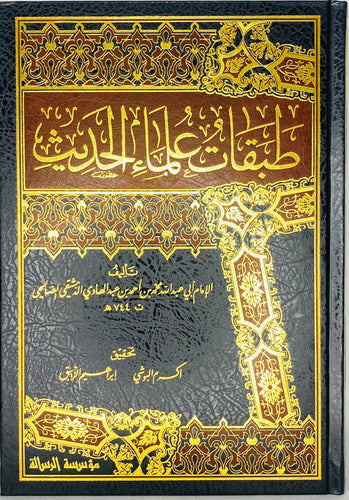 طبقات علماء الحديث
تأليف
الإمام أبي عبد الله محمد بن أحمد بن عبد الهادي الدمشقي الصالحي
ت ٧٤٤ هـ
تحقيق
أكرم البوشي إبراهيم الزيبق
مؤسسة الرسالة